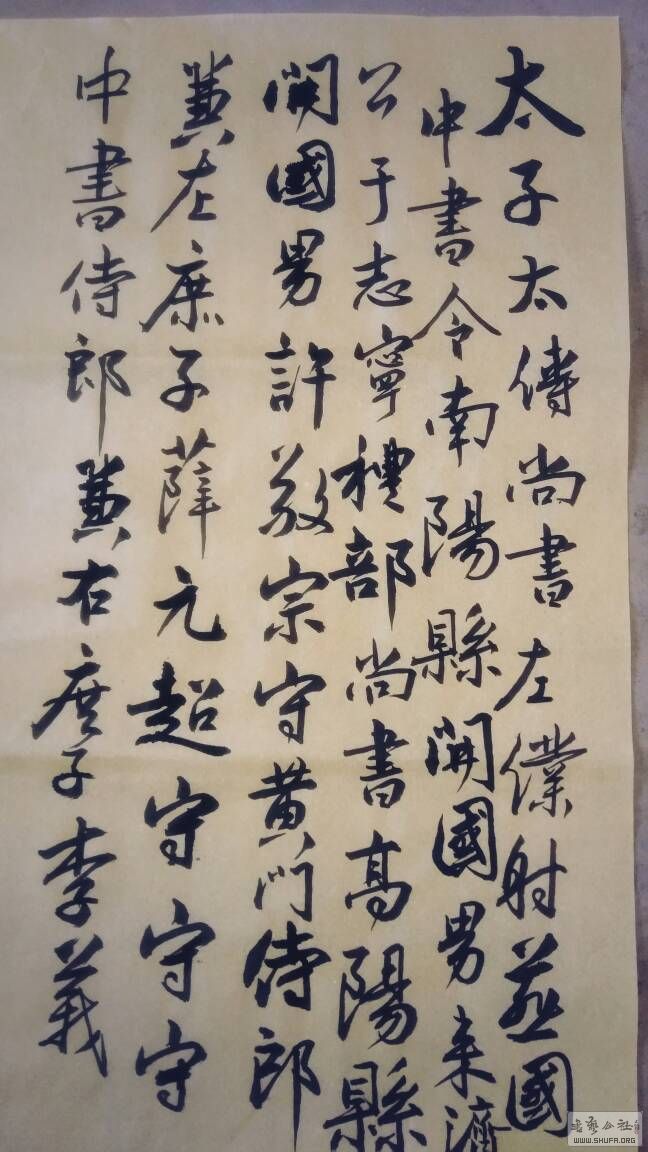 太子太傅尚書左僕射燕國
中書令南陽縣開國男来濟
公于志寧禮部尚書高陽縣
開國男許敬宗守黄門侍郎
兼左庶子薛元超守守守
中書侍郎兼右庶子李義
書藝公社
WWW.SHUFA.ORG